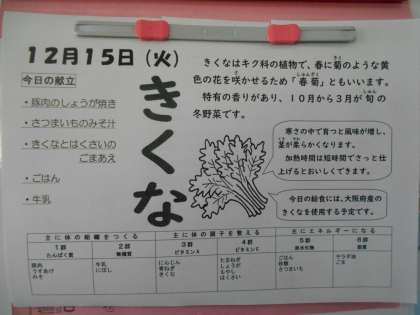 12月15日（火）
今日の献立
・豚肉のしょうが焼き
・さつまいものみそ汁
・きくなとはくさいの
ごまあえ
・ごはん
・牛乳
きくな
きくなはキク科の植物で、春に菊のような黄
色の花を咲かせるため「春菊」ともいいます。
特有の香りがあり、10月から3月が旬の
冬野菜です。
寒さの中で育つと風味が増し、
茎が柔らかくなります。
加熱時間は短時間でさっと仕
上げるとおいしくできます。
今日の給食には、大阪府産の
きくなを使用する予定です。
主に体の組織をつくる
主に体の調子を整える
主にエネルギーになる
1群
たんぱく質
2群
無機質
3群
ビタミンA
4群
ビタミンC
5群
炭水化物
6群
脂質
豚肉
うすあげ
みそ
牛乳
にぼし
にんじん
青ねぎ
きくな
たまねぎ
しょうが
もやし
はくさい
ごはん
砂糖
さつまいも
サラダ油
ごま